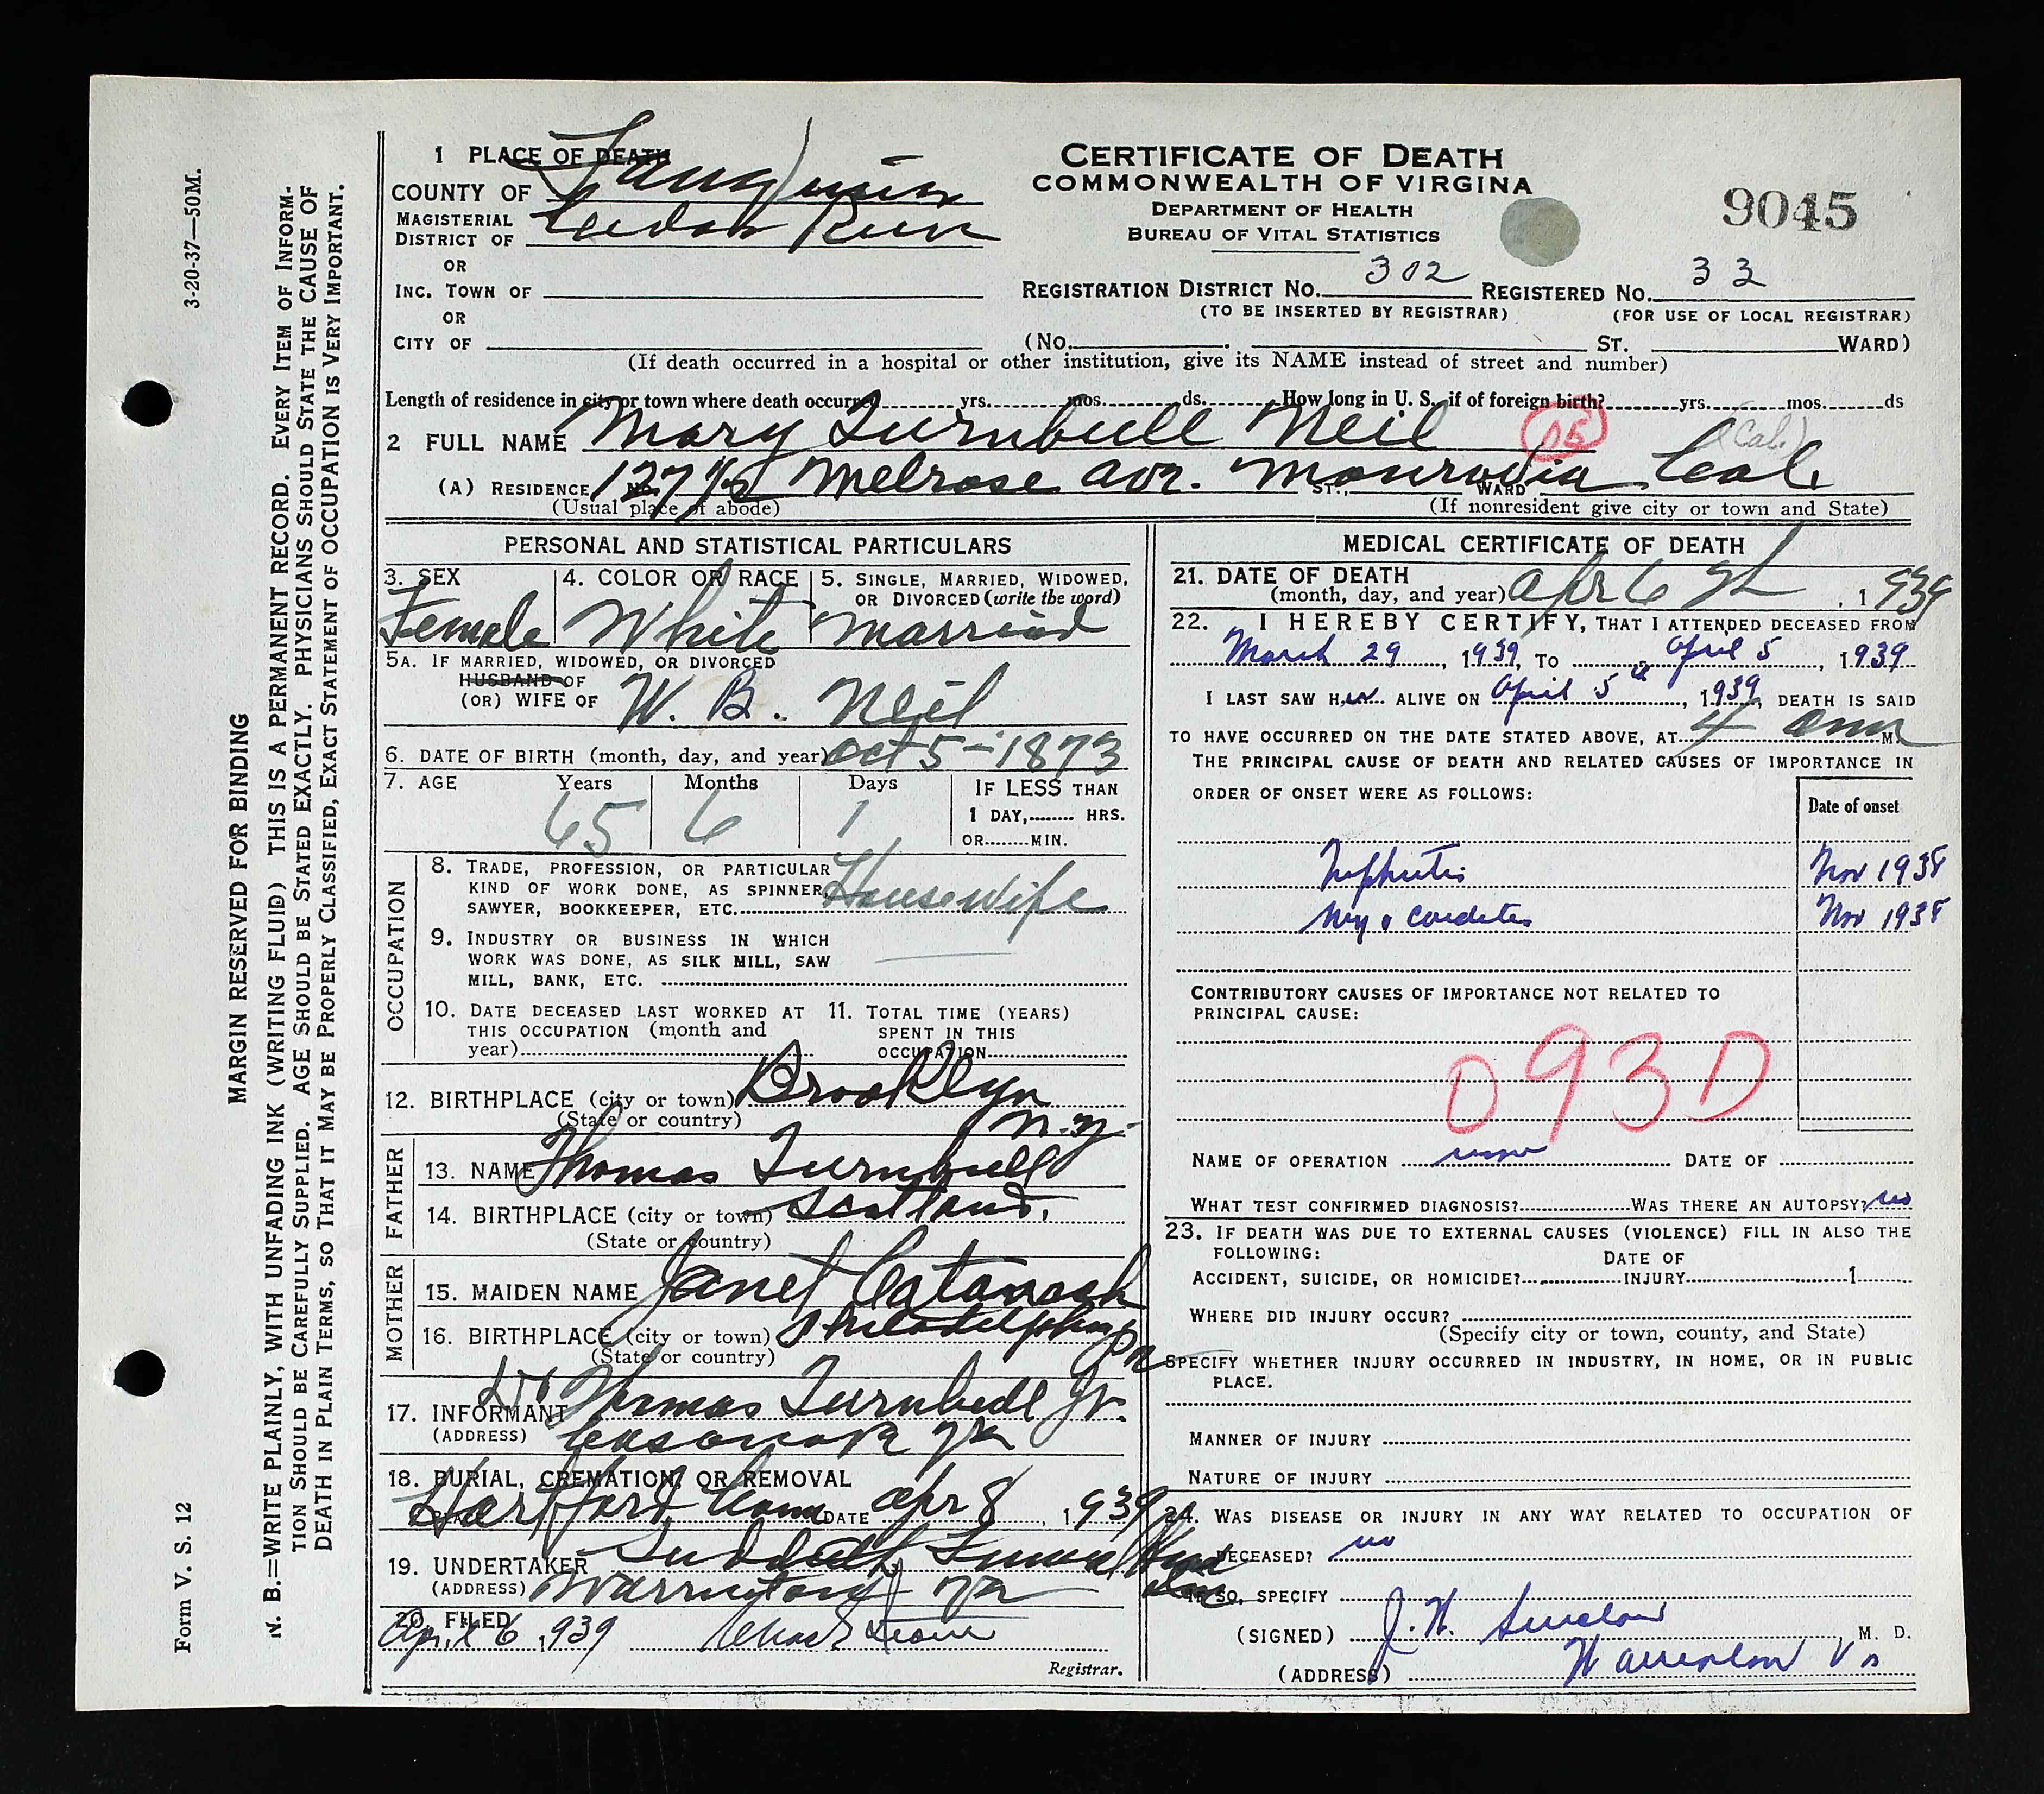 3-20-37—50M.
MARGIN RESERVED FOR BINDING
N. B.=WRITE PLAINLY, WITH UNFADING INK (WRITING FLUID) THIS IS A PERMANENT RECORD. EVERY ITEM OF INFORM-
TION SHOULD BE CAREFULLY SUPPLIED. AGE SHOULD BE STATED EXACTLY. PHYSICIANS SHOULD STATE THE CAUSE OF
DEATH IN PLAIN TERMS, SO THAT IT MAY BE PROPERLY CLASSIFIED, EXACT STATEMENT OF OCCUPATION IS VERY IMPORTANT.
Form V. S. 12
CERTIFICATE OF DEATH
COMMONWEALTH OF VIRGINA
DEPARTMENT OF HEALTH
BUREAU OF VITAL STATISTICS
9045
1 PLACE OF DEATH
COUNTY OF Fauquier
MAGISTERIAL DISTRICT OF Cedar Run
OR
INC. TOWN OF
OR
CITY OF
REGISTRATION DISTRICT NO. 302 REGISTERED NO. 33
(TO BE INSERTED BY REGISTRAR) (FOR USE OF LOCAL REGISTRAR)
(NO. ST. WARD)
(If death occurred in a hospital or other institution, give its NAME instead of street and number)
Length of residence in city or town where death occurred yrs. mos. ds. How long in U. S., if of foreign birth? yrs. mos. ds
2 FULL NAME Mary Turnbull Neil 05 (Cal.)
(A) RESIDENCE No. 127 1/2 Melrose Ave. Monrovia Cal. ST., WARD
(Usual place of abode) (If nonresident give city or town and State)
PERSONAL AND STATISTICAL PARTICULARS
3. SEX 4. COLOR OR RACE 5. SINGLE, MARRIED, WIDOWED,
OR DIVORCED (write the word)
Female White Married
5A. IF MARRIED, WIDOWED, OR DIVORCED
HUSBAND OF
(OR) WIFE OF W. B. Neil
6. DATE OF BIRTH (month, day, and year) Oct 5-1873
7. AGE Years Months Days IF LESS THAN
1 DAY, HRS.
OR MIN.
65 6 1
OCCUPATION
8. TRADE, PROFESSION, OR PARTICULAR
KIND OF WORK DONE, AS SPINNER, Housewife
SAWYER, BOOKKEEPER, ETC.
9. INDUSTRY OR BUSINESS IN WHICH
WORK WAS DONE, AS SILK MILL, SAW
MILL, BANK, ETC.
10. DATE DECEASED LAST WORKED AT
THIS OCCUPATION (month and
year)
11. TOTAL TIME (YEARS)
SPENT IN THIS
OCCUPATION
12. BIRTHPLACE (city or town) Brooklyn
(State or country) N.Y.
FATHER
13. NAME Thomas Turnbull
14. BIRTHPLACE (city or town) Scotland.
(State or country)
MOTHER
15. MAIDEN NAME Janet Catanach
16. BIRTHPLACE (city or town) Philadelphia Pa
(State or country)
17. INFORMANT Dr Thomas Turnbull Jr.
(ADDRESS) Casanova Va
18. BURIAL, CREMATION, OR REMOVAL
PLACE Hartford Conn DATE Apr 8, 1939
19. UNDERTAKER Sudduth Funeral Home
(ADDRESS) Warrenton Va
20. FILED
April 6, 1939
Registrar.
MEDICAL CERTIFICATE OF DEATH
21. DATE OF DEATH
(month, day, and year) Apr 6 th, 1939
22. I HEREBY CERTIFY, THAT I ATTENDED DECEASED FROM
March 29, 1939, TO April 5, 1939
I LAST SAW Her ALIVE ON April 5th, 1939, DEATH IS SAID
TO HAVE OCCURRED ON THE DATE STATED ABOVE, AT 4 am M.
THE PRINCIPAL CAUSE OF DEATH AND RELATED CAUSES OF IMPORTANCE IN
ORDER OF ONSET WERE AS FOLLOWS: Date of onset
Nephritis Nov 1938
Myocarditis Nov 1938
CONTRIBUTORY CAUSES OF IMPORTANCE NOT RELATED TO
PRINCIPAL CAUSE:
093D
NAME OF OPERATION none DATE OF
WHAT TEST CONFIRMED DIAGNOSIS? WAS THERE AN AUTOPSY? no
23. IF DEATH WAS DUE TO EXTERNAL CAUSES (VIOLENCE) FILL IN ALSO THE
FOLLOWING: DATE OF
ACCIDENT, SUICIDE, OR HOMICIDE? INJURY 1
WHERE DID INJURY OCCUR?
(Specify city or town, county, and State)
SPECIFY WHETHER INJURY OCCURRED IN INDUSTRY, IN HOME, OR IN PUBLIC
PLACE.
MANNER OF INJURY
NATURE OF INJURY
24. WAS DISEASE OR INJURY IN ANY WAY RELATED TO OCCUPATION OF
DECEASED? no
IF SO, SPECIFY
(SIGNED) J. H. M. D.
(ADDRESS) Warrenton Va